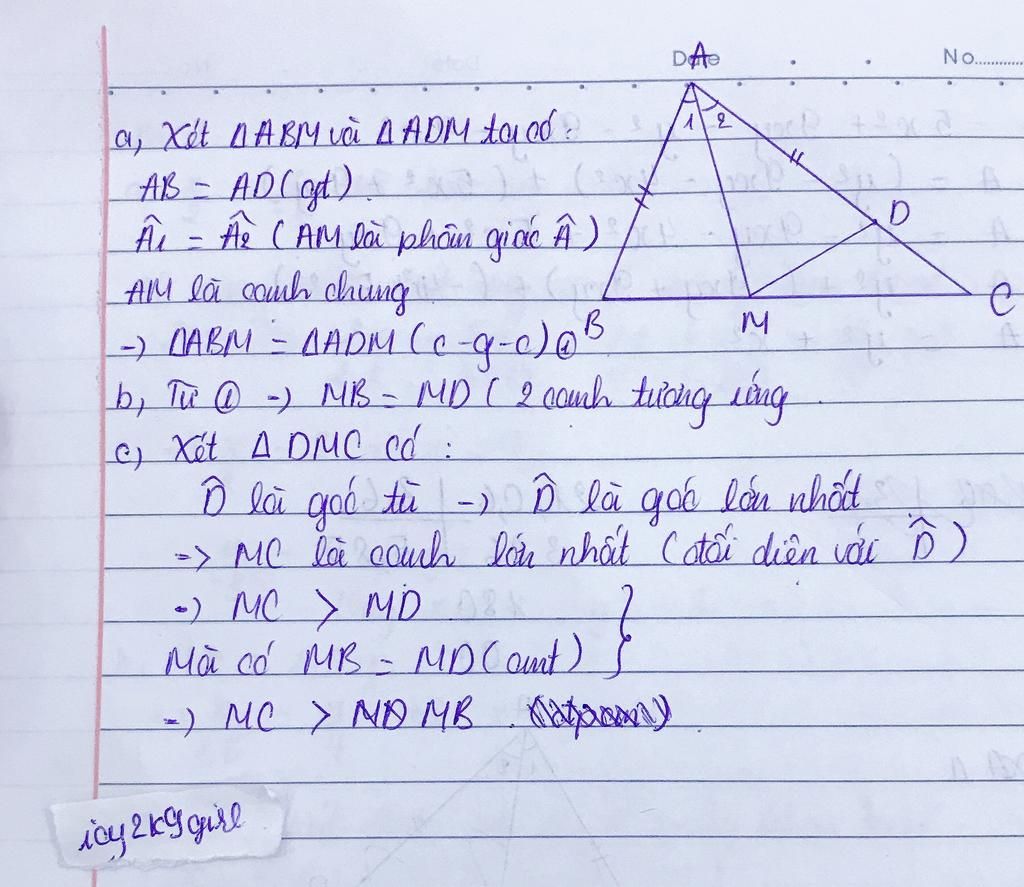 Date
No..........
A
1 2
D
B
M
C
a, Xét ΔABM và ΔADM ta có:
AB = AD (gt).
Â₁ = Â₂ (AM là phân giác Â)
AM là cạnh chung
-) ΔABM = ΔADM (c-g-c) ①
b, Từ ① -) MB = MD (2 cạnh tương ứng
c) Xét ΔDMC có:
D̂ là góc tù -) D̂ là góc lớn nhất
=> MC là cạnh lớn nhất (đối diện với D̂)
-) MC > MD
Mà có MB = MD (cmt) }
-) MC > MB
icy2k9girl